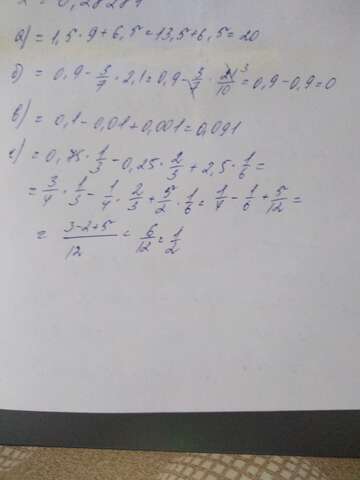 = 0,28289
а) = 1,5·9+6,5=13,5+6,5=20
б) = 0,9-3/7·2,1=0,9-3/7·21³/10=0,9-0,9=0
в) = 0,1-0,01+0,001=0,091
г) = 0,75·1/3-0,25·2/3+2,5·1/6=
= 3/4·1/3-1/4·2/3+5/2·1/6=1/4-1/6+5/12=
= 3-2+5/12=6/12=1/2